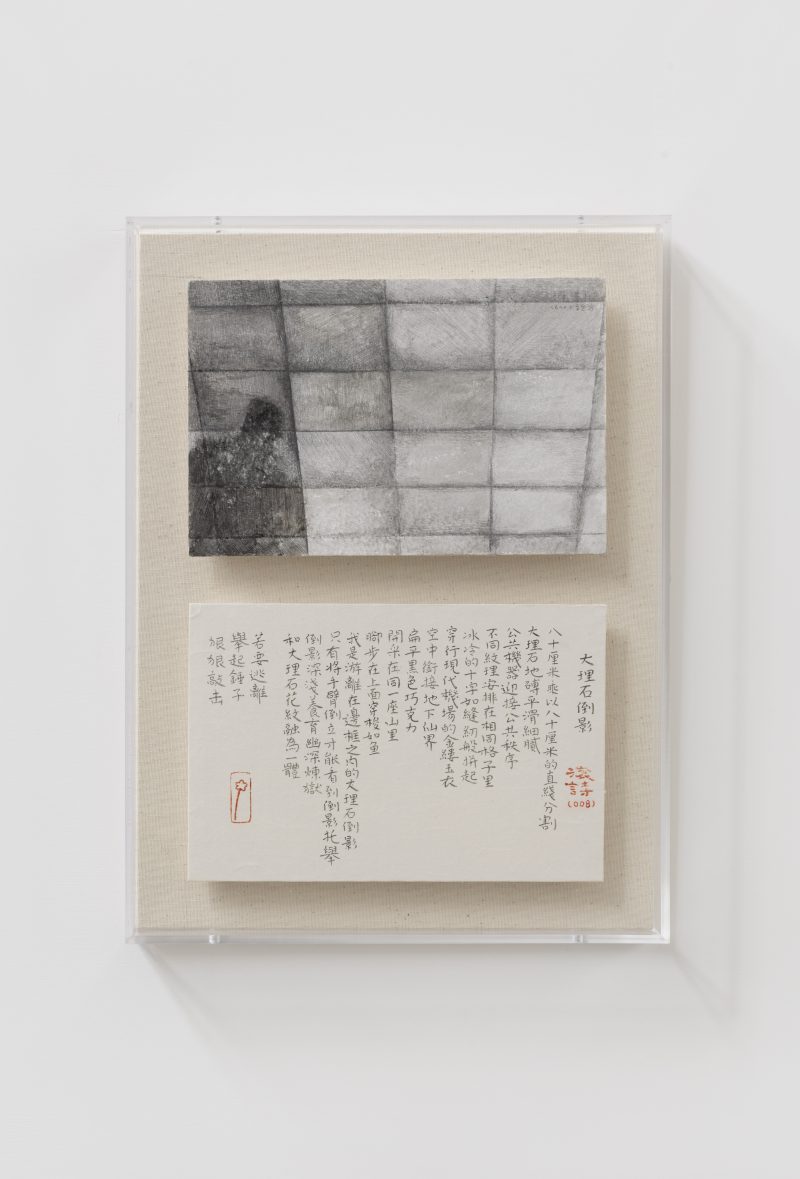 大理石倒影
(008)
八十厘米乘以八十厘米的直綫分割
大理石地磚平滑細膩
公共機器迎接公共秩序
不同紋理安排在相同格子里
冰冷的十字如縫紉般拼起
穿行現代機場的金縷玉衣
空中銜接地下仙界
扁平黑色巧克力
開采在同一座山里
腳步在上面穿梭如魚
我是游離在邊框之内的大理石倒影
只有將手臂倒立才能看到倒影托舉
倒影深淺養育幽深煉獄
和大理石花紋融為一體
若要逃離
舉起錘子
狠狠敲击